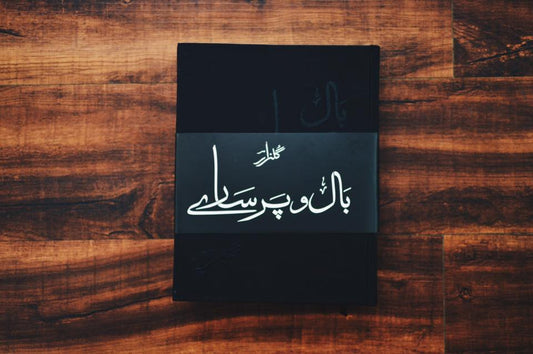 بال
گلزار
بال و پر سارے